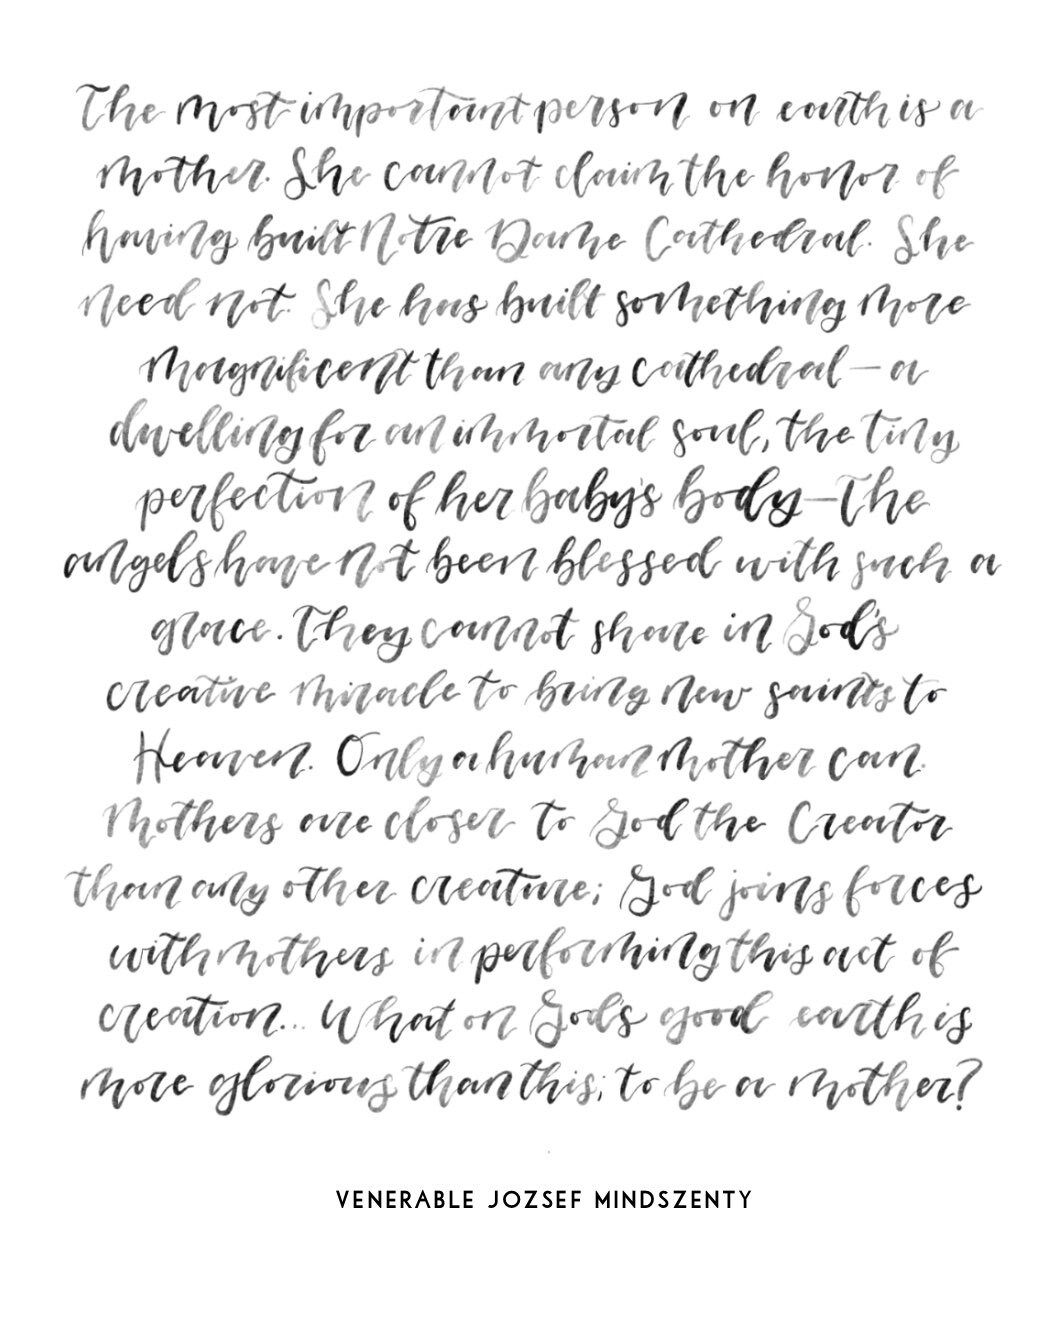 The most important person on earth is a
mother. She cannot claim the honor of
having built Notre Dame Cathedral. She
need not. She has built something more
magnificent than any cathedral—a
dwelling for an immortal soul, the tiny
perfection of her baby's body—The
angels have not been blessed with such a
grace. They cannot share in God's
creative miracle to bring new saints to
Heaven. Only a human mother can.
Mothers are closer to God the Creator
than any other creature; God joins forces
with mothers in performing this act of
creation... What on God's good earth is
more glorious than this; to be a mother?
VENERABLE JOZSEF MINDSZENTY